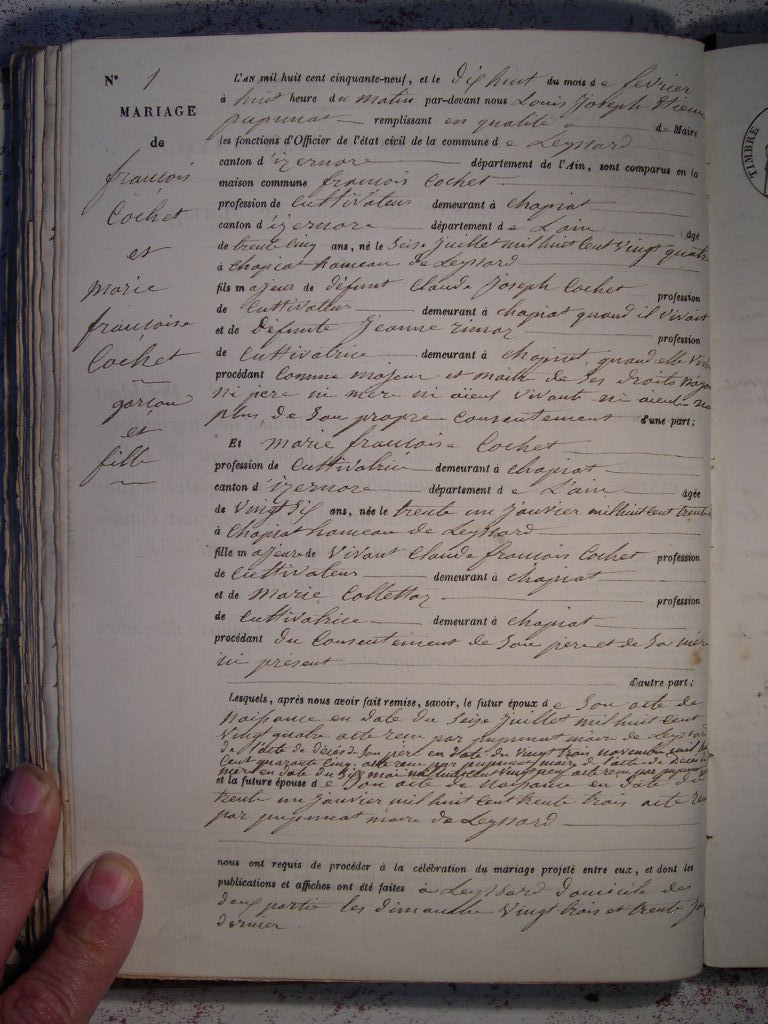 N° 1
MARIAGE
de
francois
Cochet
et
marie
francoise
Cochet
garcon
et
fille
L'AN mil huit cent cinquante-neuf, et le dix huit du mois de fevrier
à huit heure du matin par-devant nous Louis Joseph Etienn
pupunat remplissant en qualité de Maire
les fonctions d'Officier de l'état civil de la commune de Leyssard
canton d'izernore département de l'Ain, sont comparus en la
maison commune francois Cochet
profession de Cultivateur demeurant à chapiat
canton d'izernore département de L'ain âgé
de trente cinq ans, né le seise juillet mil huit cent vingt quatre
à chapiat hameau de Leyssard
fils majeur de défunt Claude Joseph Cochet profession
de Cultivateur demeurant à chapiat quand il vivait
et de défunte Jeanne profession
de Cultivatrice demeurant à chapiat quand elle viv
procédant Comme majeur et maitre de ses droits
ni pere ni mere ni aieul vivante ni aieule
plus de Son propre Consentement d'une part;
Et marie francoise Cochet
profession de Cultivatrice demeurant à chapiat
canton d'izernore département de L'ain âgée
de vingt six ans, née le trente un janvier mil huit cent trente
à Chapiat hameau de Leyssard
fille majeure de vivant Claude francois Cochet profession
de Cultivateur demeurant à chapiat
et de marie Collettaz profession
de Cultivatrice demeurant à chapiat
procédant du Consentement de Son pere et de Sa mere
ici présent
d'autre part;
Lesquels, après nous avoir fait remise, savoir, le futur époux de Son acte de
naissance en date du seise juillet mil huit cent
vingt quatre acte recu par pupunat maire de Leyssard
de l'acte de décès de Son père en date du vingt trois novembre mil huit
cent quarante cinq acte recu par pupunat maire de l'acte de décès de
mere en date du six mai mil huit cent vingt neuf acte recu par pupunat
et la future épouse de Son acte de naissance en date du
trente un janvier mil huit cent trente trois acte re
par pupunat maire de Leyssard
nous ont requis de procéder à la célébration du mariage projeté entre eux, et dont les
publications et affiches ont été faites à Leyssard domicile des
deux partie les dimanche vingt trois et trente
dernier
TIMBRE